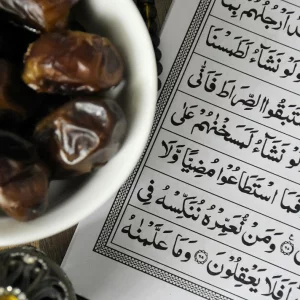 أَرْجُلُهُم بِمَا
لَوْ نَشَآءُ لَطَمَسْنَا
سْتَبَقُوا الصِّرَاطَ فَأَنّٰى
لَوْ نَشَآءُ لَمَسَخْنٰهُمْ عَلٰى
فَمَا اسْتَطَاعُوْا مُضِيًّا وَّلَا
۝ وَمَنْ نُّعَمِّرْهُ نُنَكِّسْهُ فِى
اَفَلَا يَعْقِلُوْنَ ۝ وَمَا عَلَّمْنٰهُ